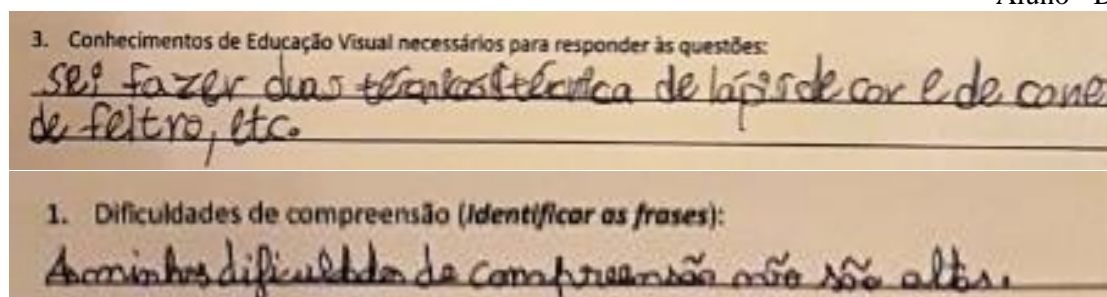 Aluno
3. Conhecimentos de Educação Visual necessários para responder às questões:
sei fazer duas técnicas (técnica de lápis de cor e de cane
de feltro, etc.
1. Dificuldades de compreensão (Identificar as frases):
As minhas dificuldades de compreensão não são altas.